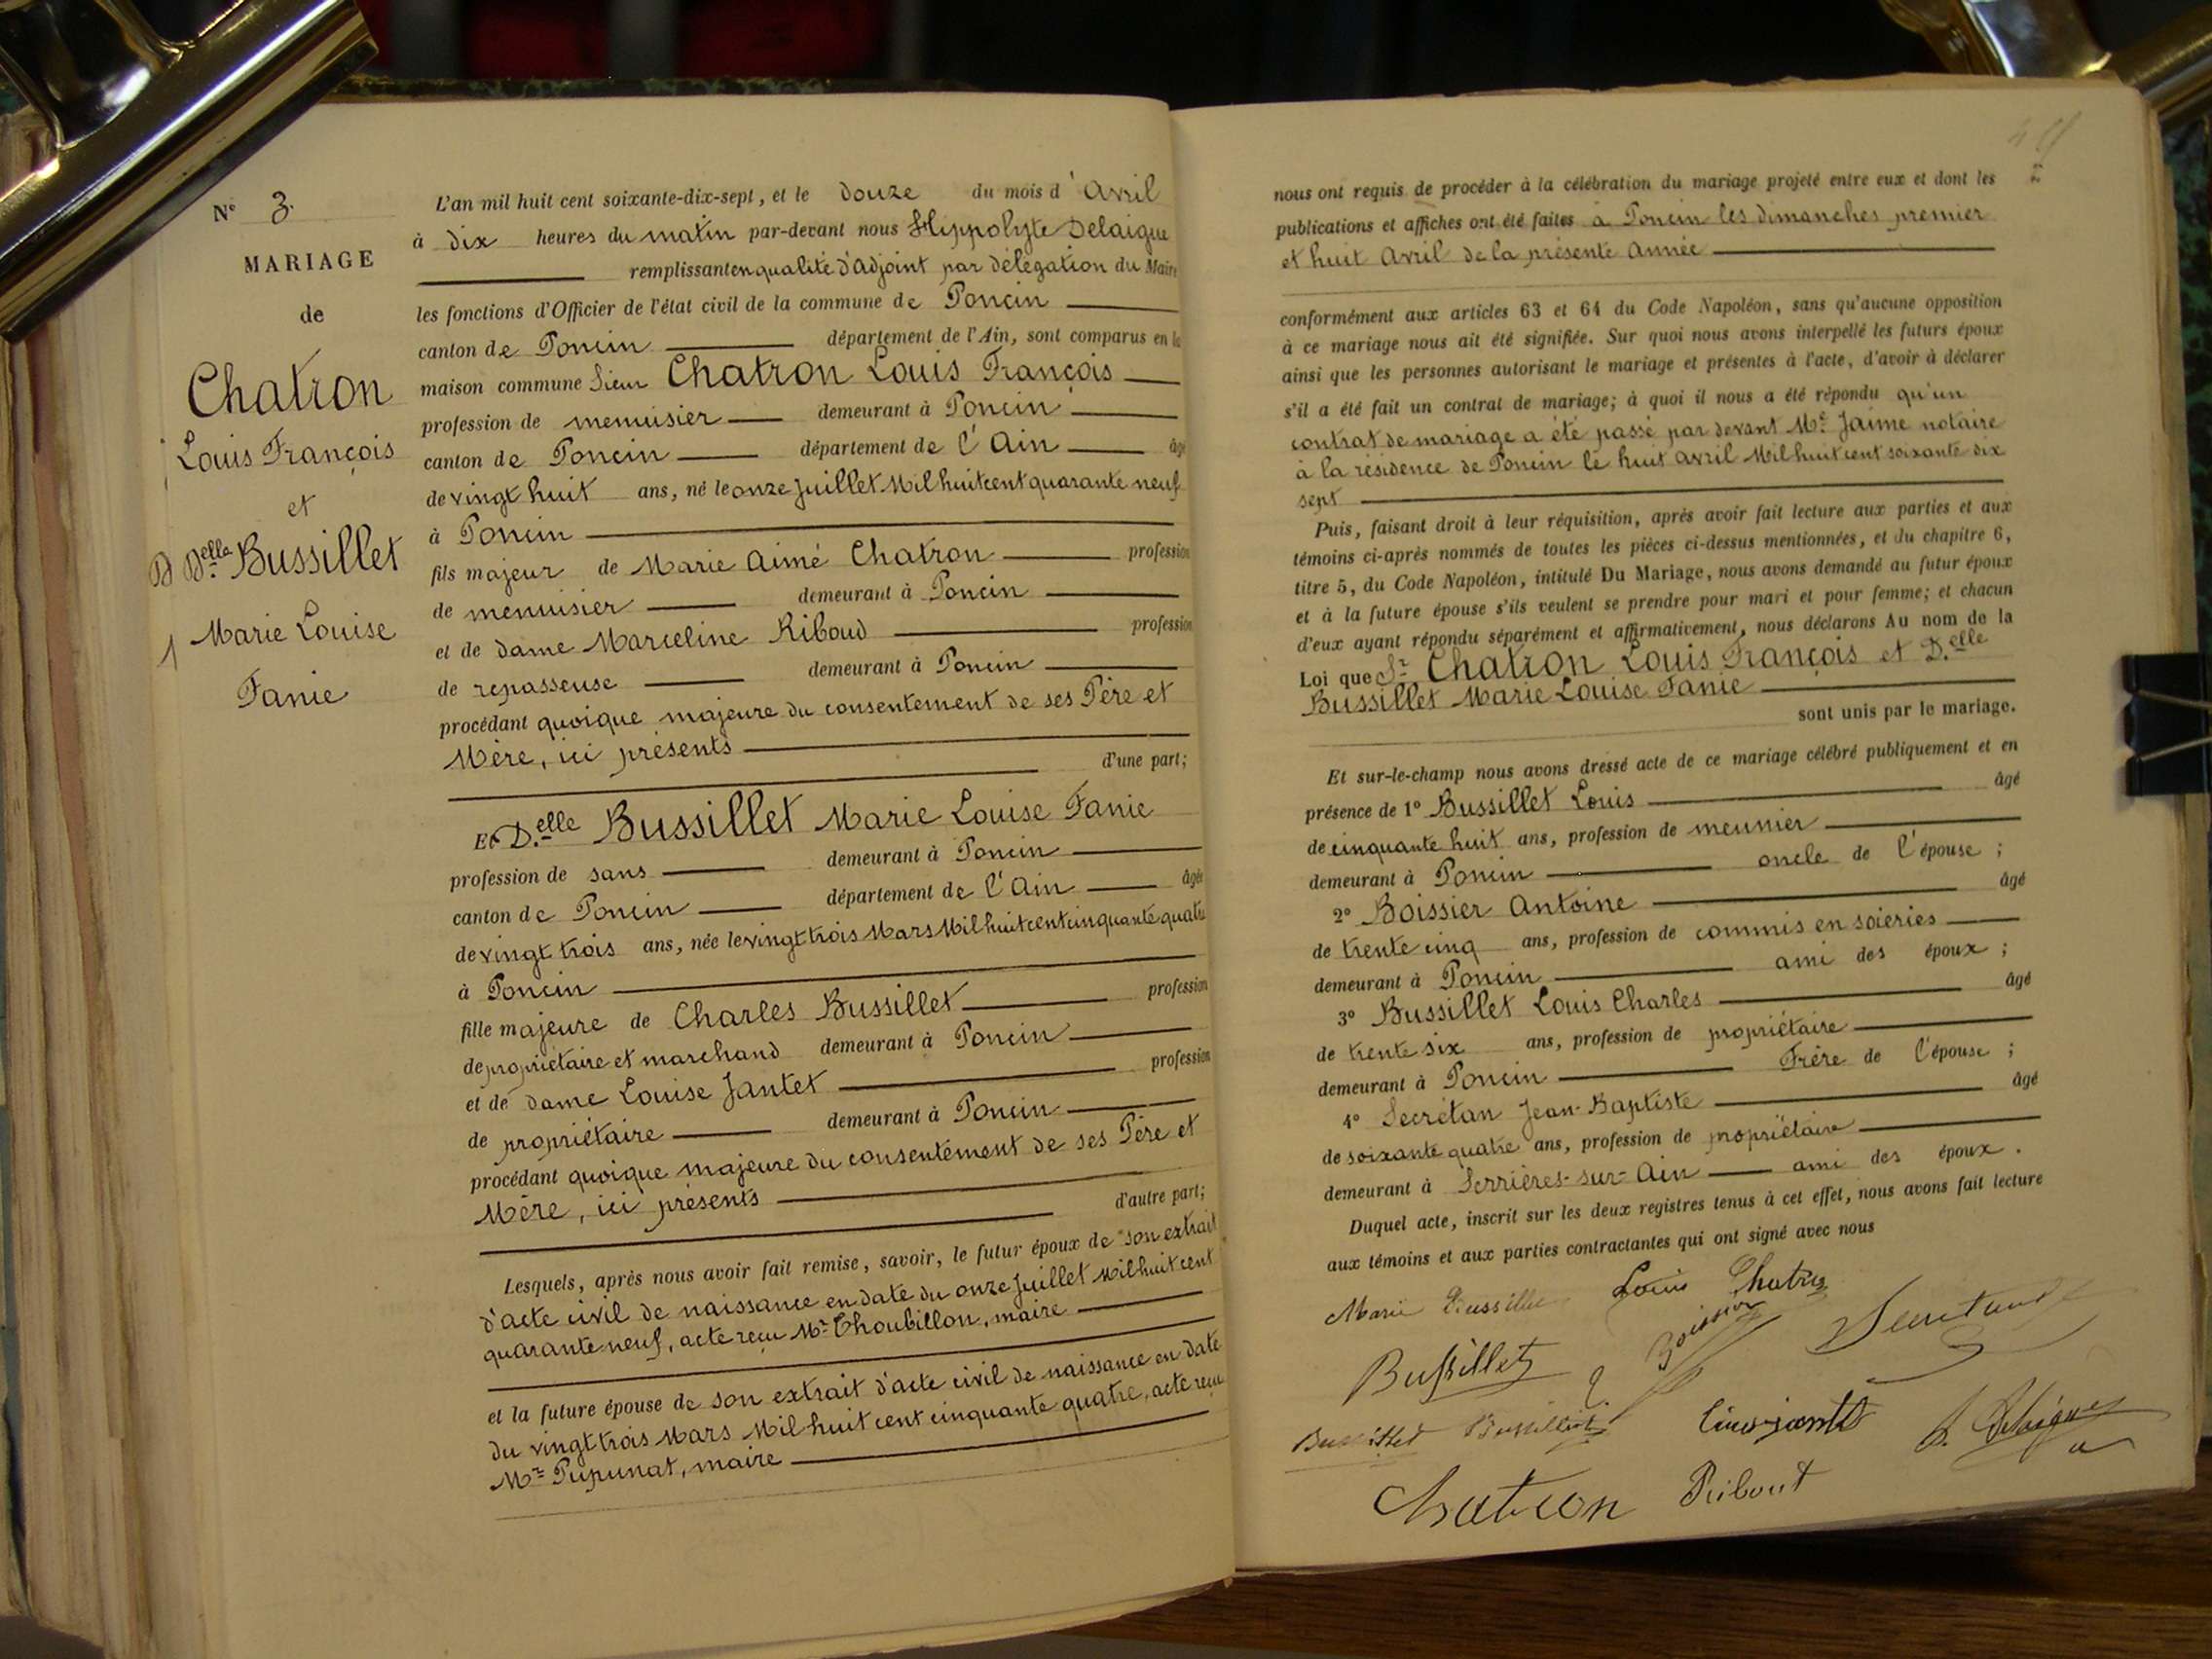 N° 3.
MARIAGE
de
Chatron
Louis François
et
Delle Bussillet
Marie Louise
Fanie
L'an mil huit cent soixante-dix-sept, et le douze du mois d' Avril
à dix heures du matin par-devant nous Hippolyte Delaigue
remplissant en qualité d'adjoint par délégation du Maire
les fonctions d'Officier de l'état civil de la commune de Poncin
canton de Poncin département de l'Ain, sont comparus en la
maison commune Sieur Chatron Louis François
profession de menuisier demeurant à Poncin
canton de Poncin département de l'Ain âgé
de vingt huit ans, né le onze Juillet Mil huit cent quarante neuf
à Poncin
fils majeur de Marie Aimé Chatron profession
de menuisier demeurant à Poncin
et de dame Marceline Riboud profession
de repasseuse demeurant à Poncin
procédant quoique majeure du consentement de ses Père et
Mère, ici présents
d'une part;
Et Delle Bussillet Marie Louise Fanie
profession de sans demeurant à Poncin
canton de Poncin département de l'Ain âgée
de vingt trois ans, née le vingt trois Mars Mil huit cent cinquante quatre
à Poncin
fille majeure de Charles Bussillet profession
de propriétaire et marchand demeurant à Poncin
et de dame Louise Jantet profession
de propriétaire demeurant à Poncin
procédant quoique majeure du consentement de ses Père et
Mère, ici présents
d'autre part;
Lesquels, après nous avoir fait remise, savoir, le futur époux de son extrait
d'acte civil de naissance en date du onze Juillet Mil huit cent
quarante neuf, acte reçu Mr Thoubillon, maire
et la future épouse de son extrait d'acte civil de naissance en date
du vingt trois Mars Mil huit cent cinquante quatre, acte reçu
Mr Pupunat, maire
nous ont requis de procéder à la célébration du mariage projeté entre eux et dont les
publications et affiches ont été faites à Poncin les dimanches premier
et huit Avril de la présente Année
conformément aux articles 63 et 64 du Code Napoléon, sans qu'aucune opposition
à ce mariage nous ait été signifiée. Sur quoi nous avons interpellé les futurs époux
ainsi que les personnes autorisant le mariage et présentes à l'acte, d'avoir à déclarer
s'il a été fait un contrat de mariage; à quoi il nous a été répondu qu'un
contrat de mariage a été passé par devant Me Jaime notaire
à la résidence de Poncin le huit avril Mil huit cent soixante dix
sept
Puis, faisant droit à leur réquisition, après avoir fait lecture aux parties et aux
témoins ci-après nommés de toutes les pièces ci-dessus mentionnées, et du chapitre 6,
titre 5, du Code Napoléon, intitulé Du Mariage, nous avons demandé au futur époux
et à la future épouse s'ils veulent se prendre pour mari et pour femme; et chacun
d'eux ayant répondu séparément et affirmativement, nous déclarons Au nom de la
Loi que Sr Chatron Louis François et D.elle
Bussillet Marie Louise Fanie
sont unis par le mariage.
Et sur-le-champ nous avons dressé acte de ce mariage célébré publiquement et en
présence de 1° Bussillet Louis âgé
de cinquante huit ans, profession de meunier
demeurant à Poncin oncle de l'épouse ;
2° Boissier Antoine âgé
de trente cinq ans, profession de commis en soieries
demeurant à Poncin ami des époux ;
3° Bussillet Louis Charles âgé
de trente six ans, profession de propriétaire
demeurant à Poncin Frère de l'épouse ;
4° Secrétan Jean-Baptiste âgé
de soixante quatre ans, profession de propriétaire
demeurant à Serrières-sur-Ain ami des époux.
Duquel acte, inscrit sur les deux registres tenus à cet effet, nous avons fait lecture
aux témoins et aux parties contractantes qui ont signé avec nous
Marie Bussillet Louis Chatron
Bussillet Boissier Secretand
Bussillet Bussillet
Chatron Ribout